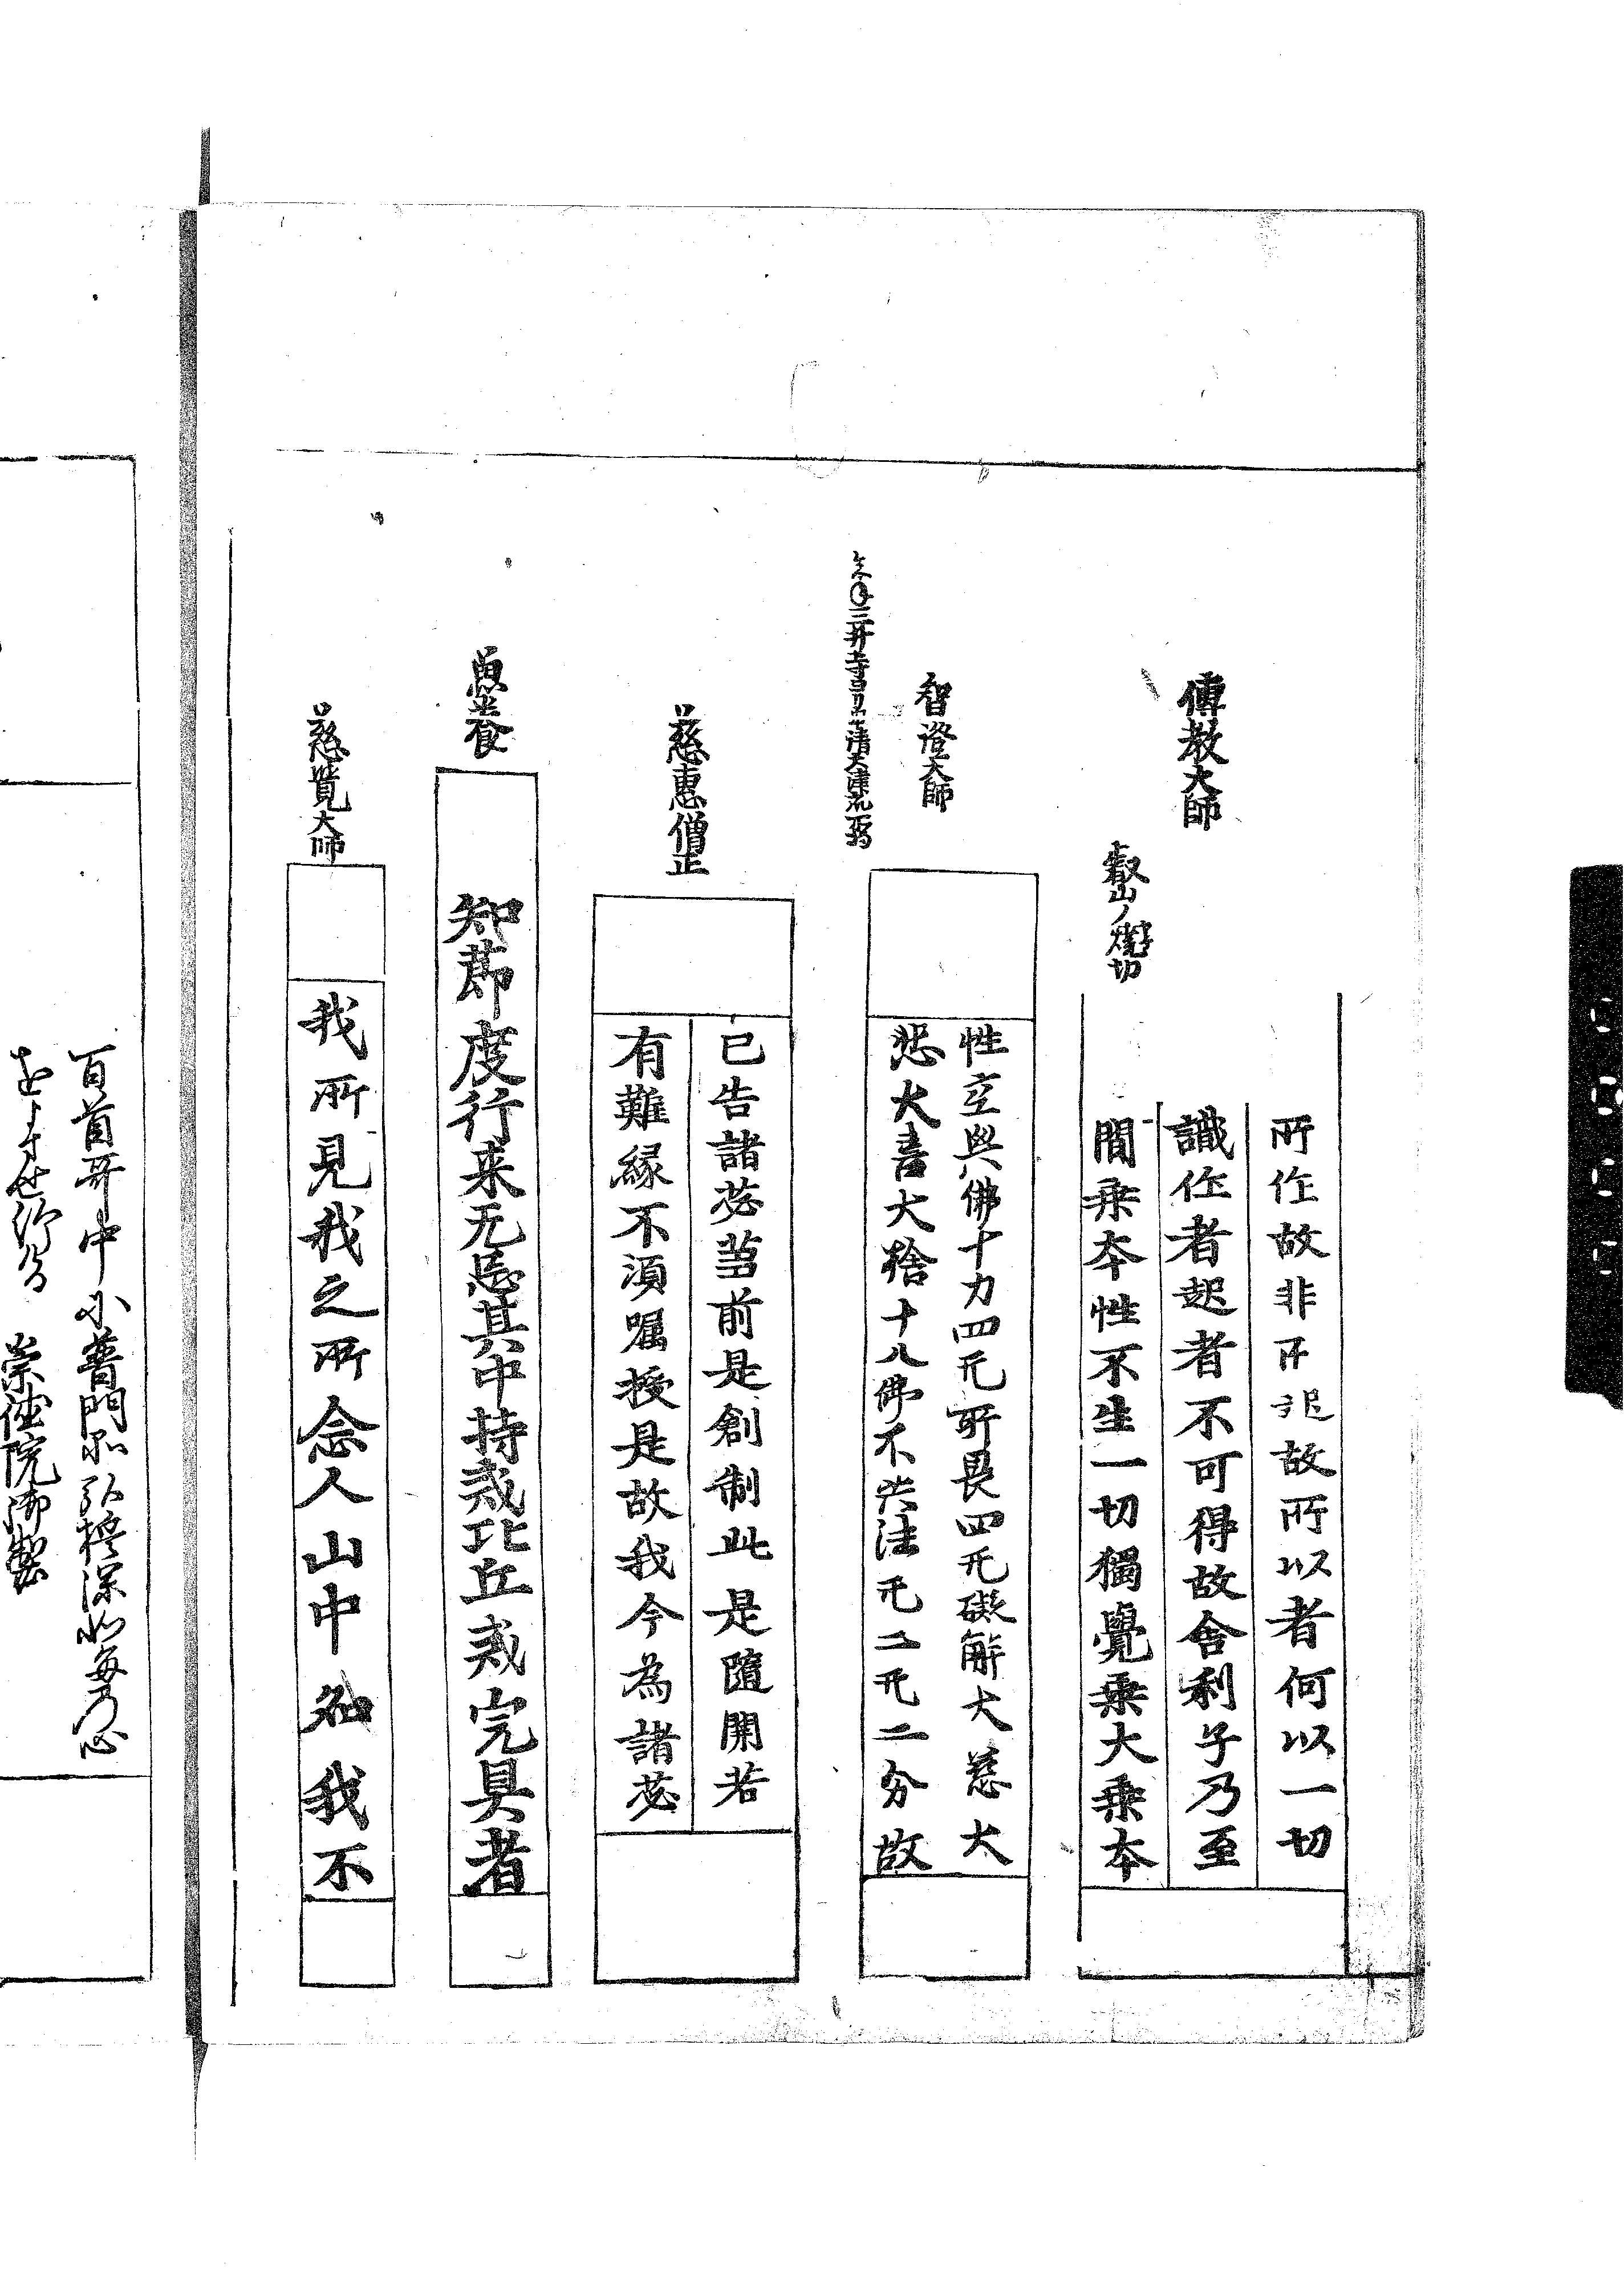 傳教大師
叡山ノ焼切
所作故非所起故所以者何以一切
識作者起者不可得故舍利子乃至
間乗本性不生一切獨覺乗大乗本
智證大師
性空與佛十力四无所畏四无礙解大慈大
悲大喜大捨十八佛不共法无二无二分故
慈惠僧正
已告諸苾芻前是創制此是隨開若
有難縁不須囑授是故我今為諸苾
知莭度行来无忌其中持戒比丘戒完具者
慈覺大師
我所見我之所念人山中知我不
百首哥中に普門品弘誓深如海乃心
崇徳院御製